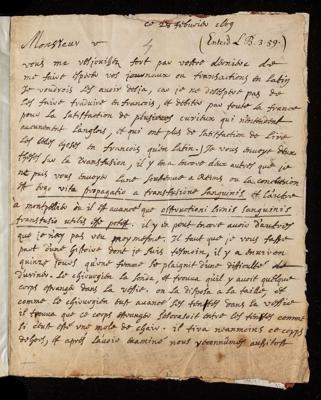 ce 28 Febvrier 1669
(Enterd L.B. 3. 59.)
Monsieur
vous me resjouistes fort par vostre derniere de
me faire esperer vos journaux ou transactions en latin
Je voudrois les avoir desia, car je ne desespere pas de
les faire traduire en francois, et debiter par toute la france
pour la satisfaction de plusieurs curieux qui n'entendent
aucunement l'anglois, et qui ont plus de satisfaction de lire
les belles choses en francois qu'en latin. Je vous envoye deux
theses sur la transfusion, il y en a encore deux autres que je
ne puis vous envoyer l'une soutenue a Reims ou la conclusion
est ergo vita propagatio a transfusione sanguinis et l'autre
a montpellier ou il est avancé que
transfusio utilis est potest. il y en peut encore avoir d'autres
que je n'ay pas veu moymesme. Il faut que je vous fasse
part d'une histoire dont je suis tesmoin, il y a environ
quinze jours qu'une femme se plaignit d'une difficulté
d'uriner. Le chirurgien la sonda, et trouva qu'il y avoit quelque
corps estrange dans la vessie, on la disposa a la taille, et
comme le chirurgien eut avancé les tenettes dans la vessie
il trouva que ce corps estrange s'eslevoit entre les tenettes comme
si c'eut esté une mole de chair. il tira neanmoins ce corps
dehors, et apres l'avoir examiné nous reconnumes